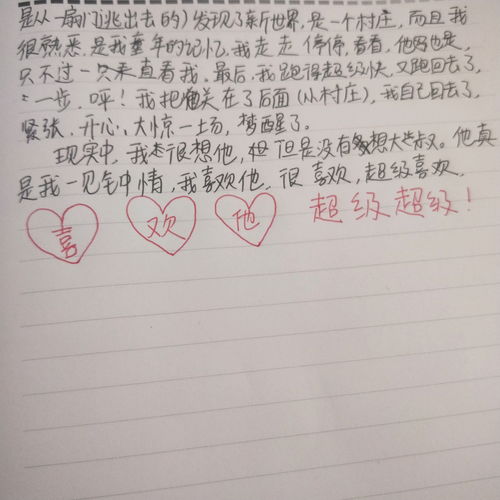 是从一扇门逃出去的)发现了新世界,是一个村庄,而且我
很熟悉,是我童年的记忆,我走走停停,看看,他也是,
只不过一只来直看我,最后,我跑得超级快,又跑回去了,
一步,呯!我把他关在了后面(从村庄),我自己回去了,
紧张、开心、大惊一场,梦醒了。
现实中,我很想他,但是没有多想大叔。他真
是我一见钟情,我喜欢他,很喜欢,超级喜欢,
喜 欢 他 超级超级!